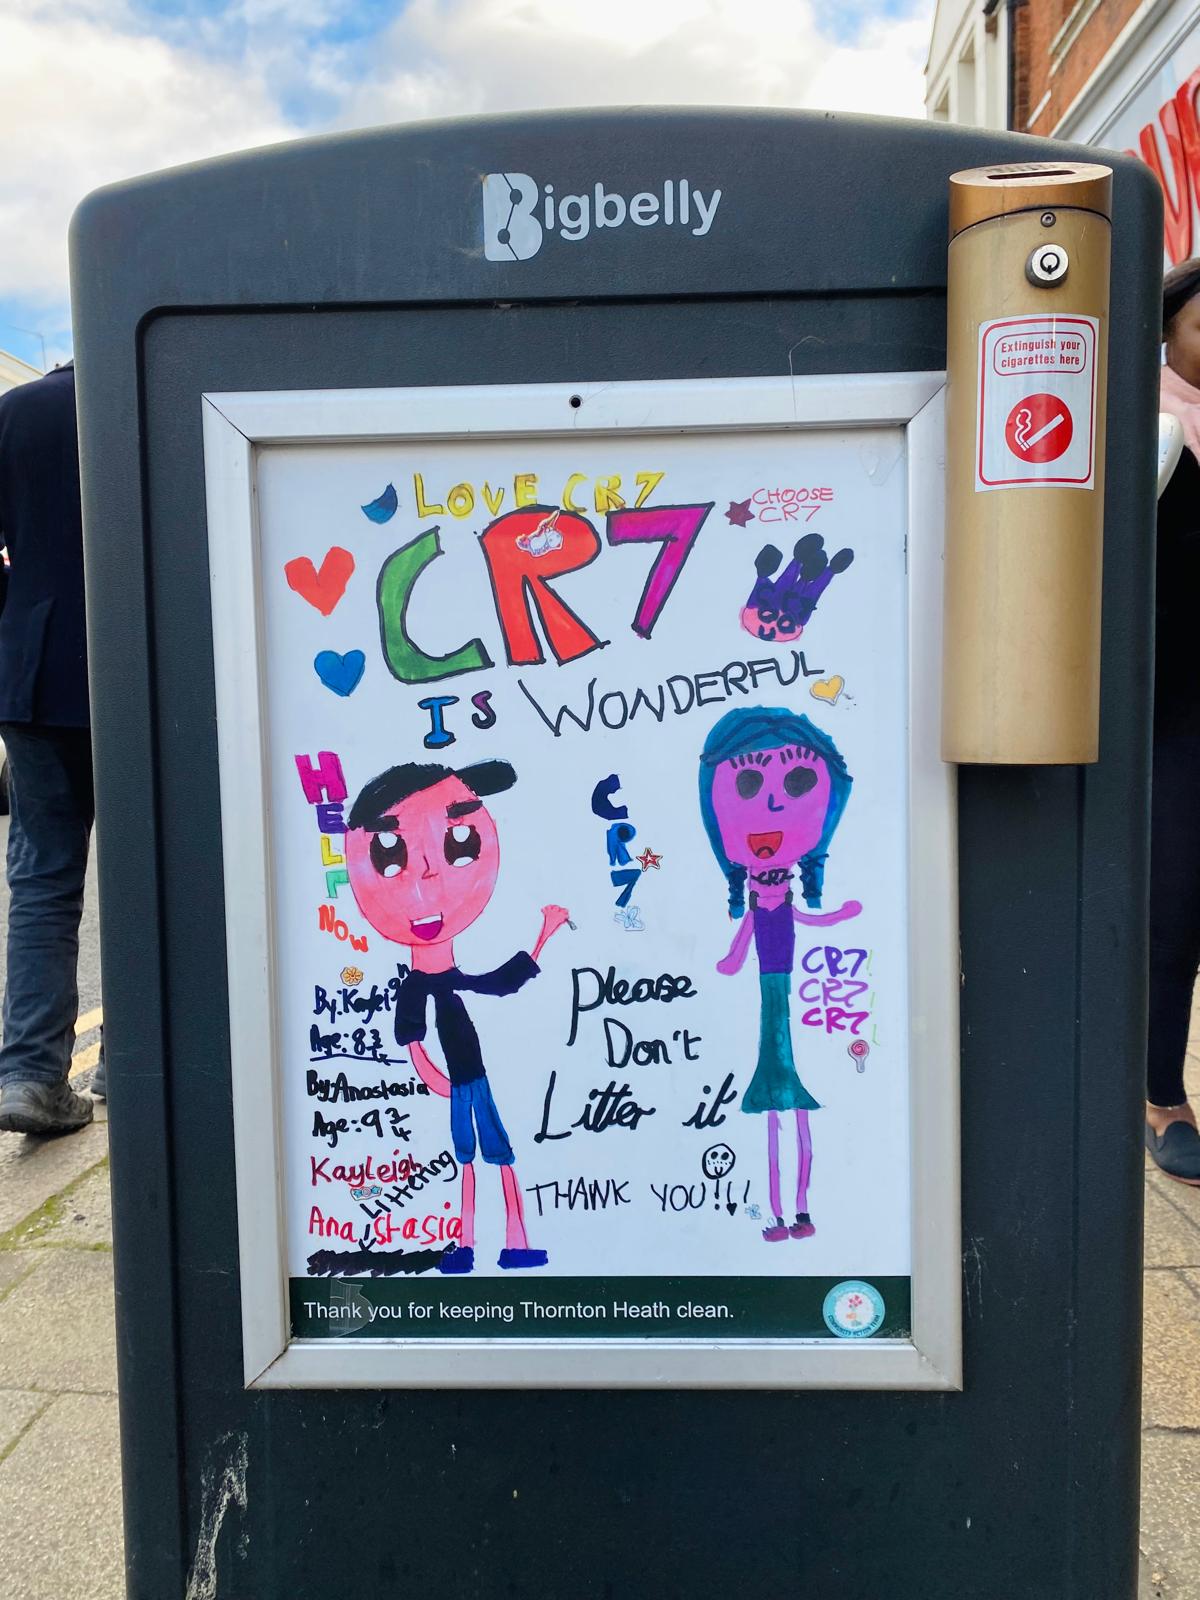 Bigbelly
Extinguish your
cigarettes here
LOVE CR7
CHOOSE
CR7
CR7
IS WONDERFUL
HELP
NOW
CR7
CR7
By: Kayleigh
Age: 8 3/4
By: Anastasia
Age: 9 3/4
Kayleigh
Littering
Anastasia
Please
Don't
Litter it
THANK YOU!!!
CR7!
CR7!
CR7!
Thank you for keeping Thornton Heath clean.
COMMUNITY ACTION TEAM